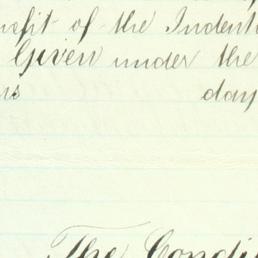 nefit of the Indent
Given under the
rs day
The Condi